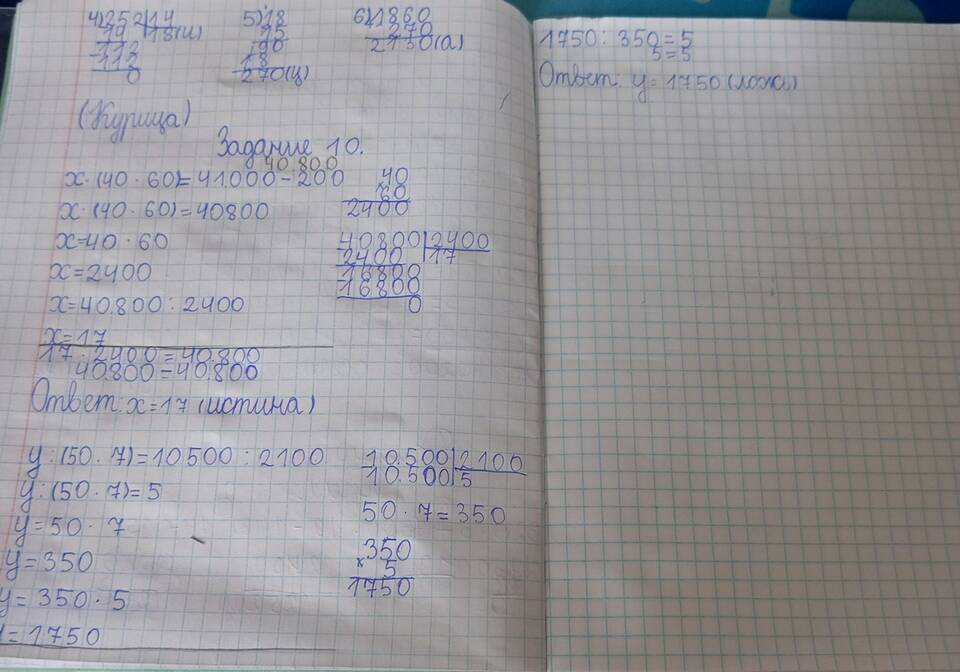 4) 252 | 14
14 | 18 (и)
112
112
0
5) 18
15
90
18
270 (ц)
6) 1860
270
2130 (а)
(Курица)
Задание 10.
40.800
x · (40 · 60) = 41.000 - 200
x · (40 · 60) = 40800
x = 40 · 60
x = 2400
x = 40.800 : 2400
x = 17
17 · 2400 = 40.800
40.800 = 40.800
Ответ: x = 17 (истина)
40
× 60
2400
40800 | 2400
2400 | 17
16800
16800
0
y : (50 · 7) = 10500 : 2100
y : (50 · 7) = 5
y = 50 · 7
y = 350
y = 350 · 5
y = 1750
10.500 | 2100
10.500 | 5
50 · 7 = 350
× 350
5
1750
1750 : 350 = 5
5 = 5
Ответ: y = 1750 (ложь)